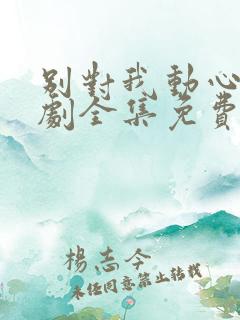 别對我動心
劇全集免費
楊志今
未经同意禁止转载